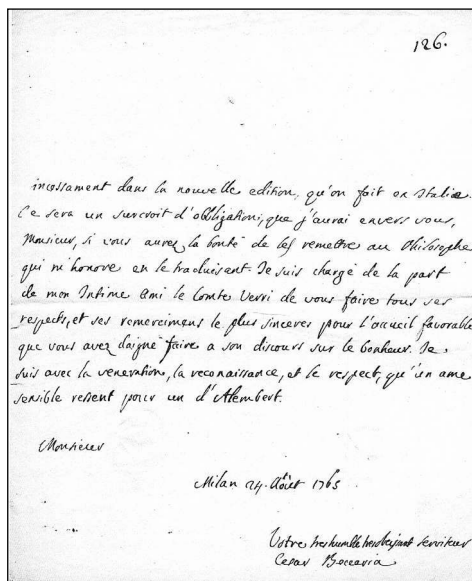 126.
incessament dans la nouvelle edition, qu'on fait en Italie.
Ce sera un surcroit d'obligation, que j'aurai envers vous,
Monsieur, si vous aurez la bonté de les remettre au Philosophe
qui m'honore en le traduisant. Je suis chargé de la part
de mon Intime Ami le Comte Verri de vous faire tous ses
respects, et ses remercimens le plus sinceres pour l'accueil favorable
que vous avez daigné faire a son discours sur le bonheur. Je
suis avec la veneration, la reconaissance, et le respect, qu'un ame
sensible resent pour un d'Alembert.
Monsieur
Milan 24. Août 1765
Votre tres humble tres obeisant serviteur
Cesar Beccaria